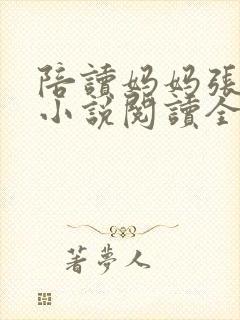 陪讀媽媽張
小說閱讀全
著夢人